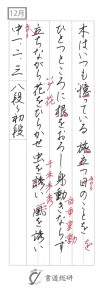 12月
木はいつも憶っている 旅立つ日のことを
ひとつところに根をおろし身動きならず
立ちながら花をひらかせ虫を誘い風を誘い
中一、二、三 八段〜初段
書道総研